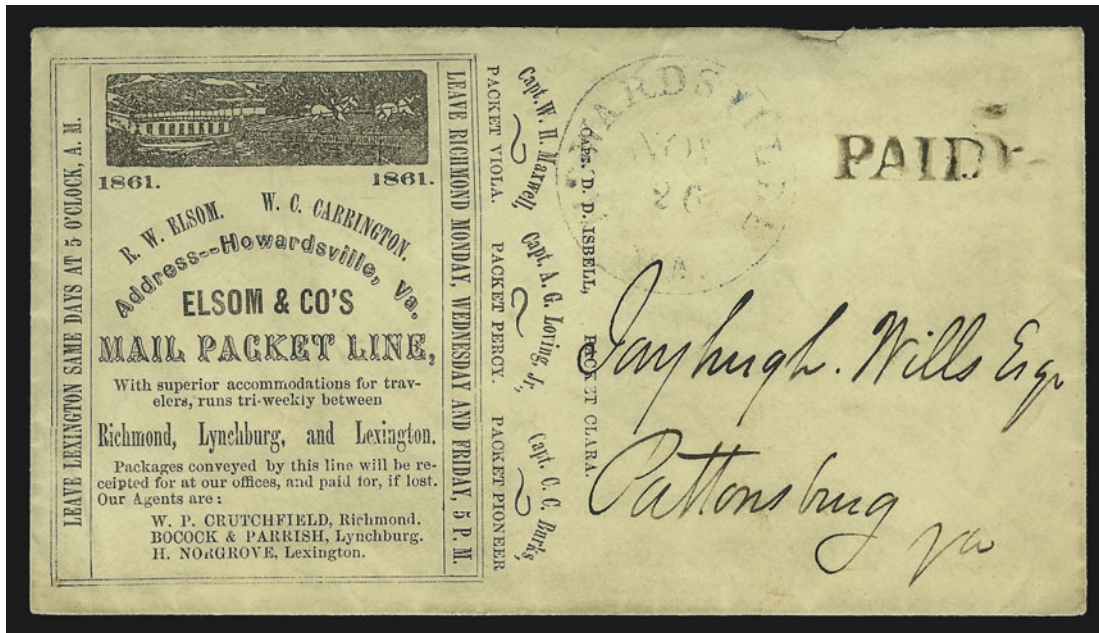 LEAVE LEXINGTON SAME DAYS AT 5 O'CLOCK, A. M.
1861. 1861.
R. W. ELSOM. W. C. CARRINGTON.
Address--Howardsville, Va.
ELSOM & CO'S
MAIL PACKET LINE,
With superior accommodations for trav-
elers, runs tri-weekly between
Richmond, Lynchburg, and Lexington.
Packages conveyed by this line will be re-
ceipted for at our offices, and paid for, if lost.
Our Agents are:
W. P. CRUTCHFIELD, Richmond.
BOCOCK & PARRISH, Lynchburg.
H. NORGROVE, Lexington.
LEAVE RICHMOND MONDAY, WEDNESDAY AND FRIDAY, 5 P. M.
Capt. W. H. Maxwell, Capt. A. G. Loving, Jr., Capt. C. C. Burks,
PACKET VIOLA. PACKET PERCY. PACKET PIONEER
CAPT. D. D. ISBELL, PACKET CLARA.
WARDSVILLE
26
VA.
PAID
Wills Esqr
Pattonsburg
Va